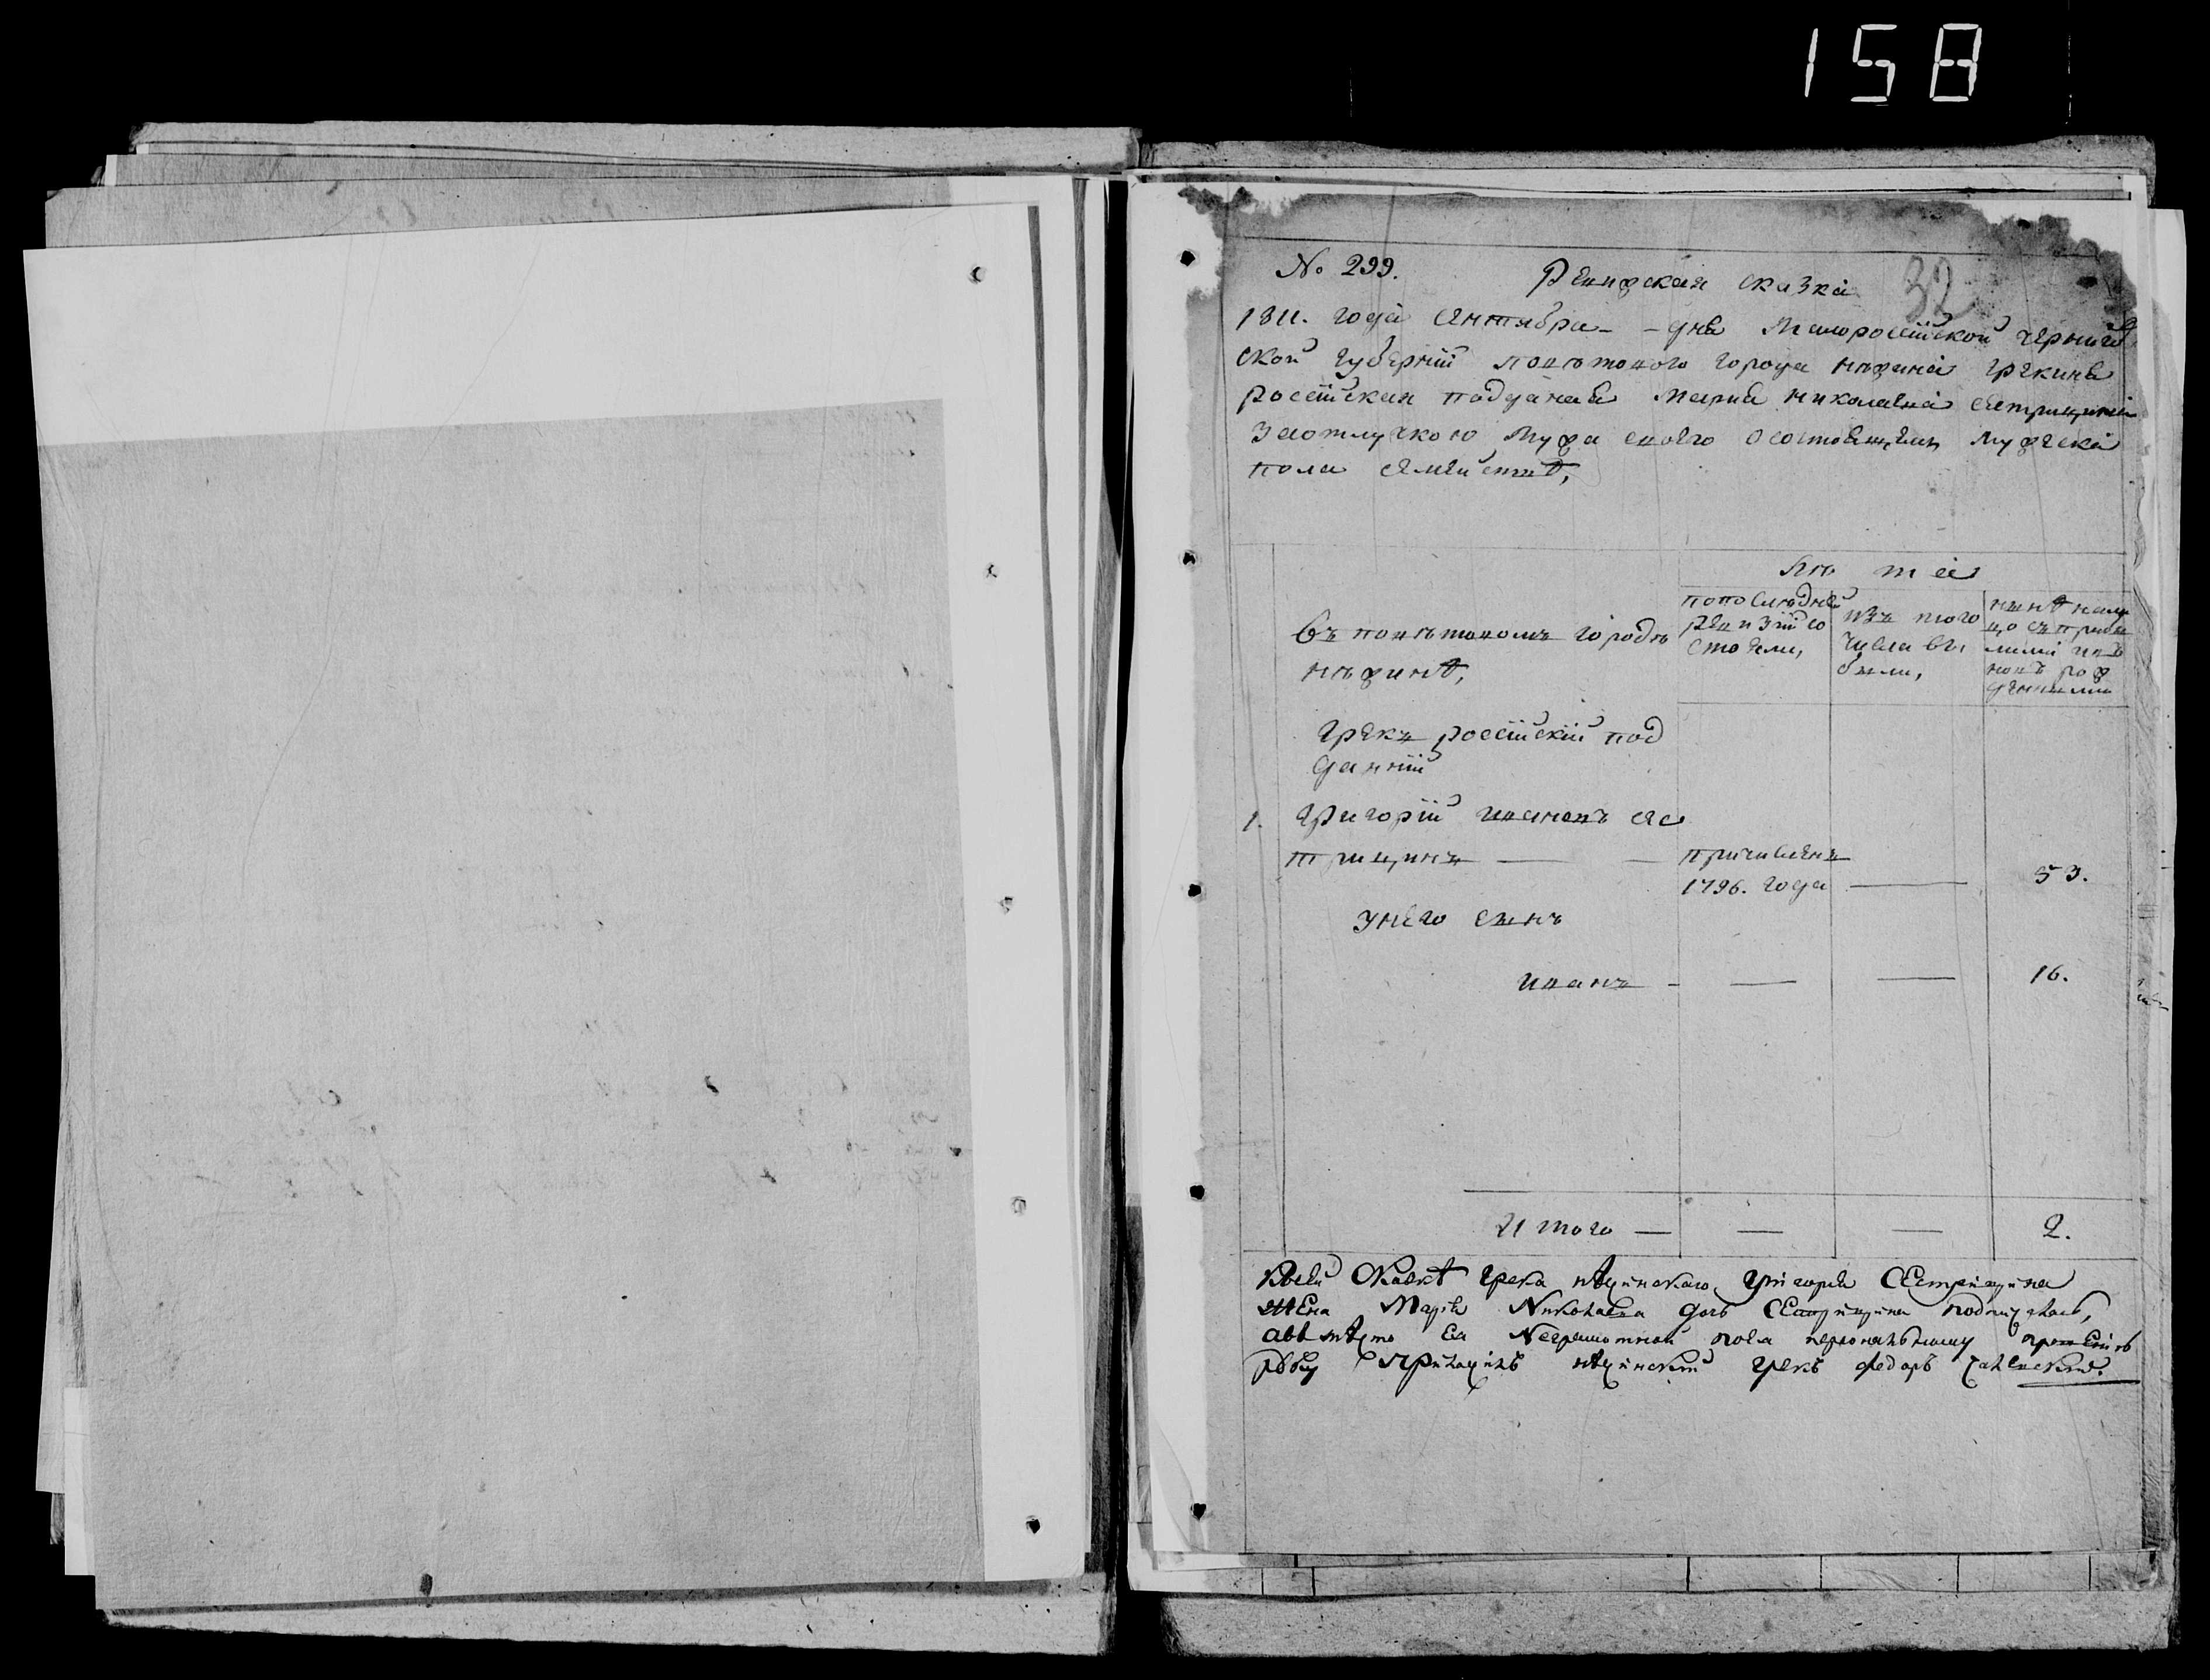 158
№ 299.
Ревижская сказка 32
1811. года сентября - - дня Малоросийской Чернигов
ской губернии поветового города нежина грекине
росийская подданая Мария николаева сестрицина
за отлучкою мужа своего о состоящем мужеска
пола семействе,
Лѣ та
въ поветовомъ городѣ нѣжинѣ,
по последней ревизии со стояли,
изъ того числа вы были,
нынѣ налицо съ прибы лими и въ новъ рож денными
Грекъ росийский под
данний
1. Григорий ивановъ сес
трицинъ — — причисленъ
1796. года — 53.
у него сынъ
иванъ - — — 16.
И того — — — 2.
К сей скаске грека нѣжинскаго григория сестрицина
жена Мария Николаева дочь сестрицина подписалась,
а вместо ея неграмотной по ея персональному прошению
руку приложилъ нѣжинский грекъ федоръ